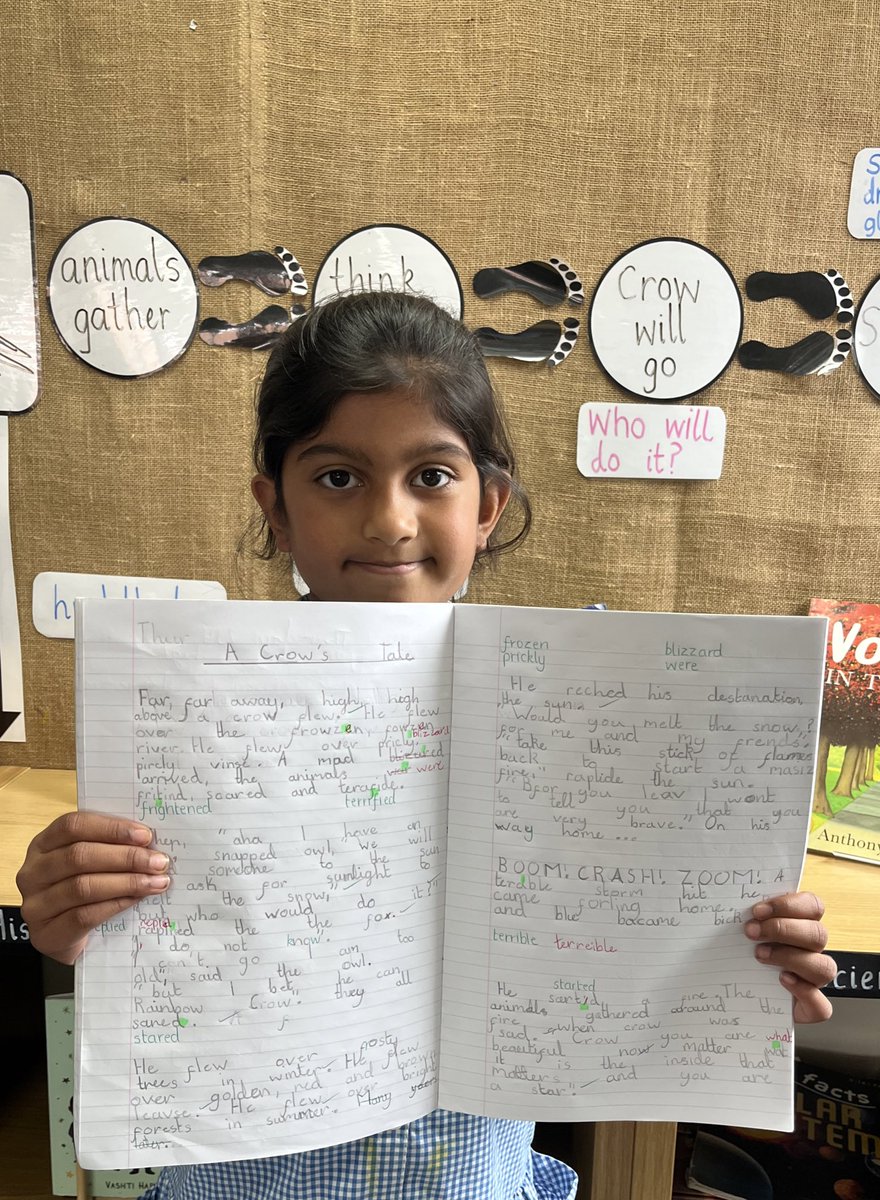 animals
gather
think
Crow
will
go
Who will
do it?
A Crow's Tale
Far, far away, high, high
above a crow flew. He flew
over the frowzen, fowzen
blizzard
river. He flew over pricly,
pircly vings. A mad
were
arrived, the animals
fritind, scared and
frightened
terrified
"aha I have an
snapped owl, we will
someone to the sun
ask for sunlight to
melt the snow,"
but who would do it?"
replied
the the fox.
I do not know.
I can't. go I am too
old", said the owl.
"but I bet" the can
Rainbow Crow. they all
sared.
stared
He flew over
trees in winter. He flew
over golden, red and brown
leavse. He flew over bright
forests in summer. Many years
later.
frozen
prickly
blizzard
were
He reched his destanation,
the sun.
"Would you melt the snow,?
for me and my frends."
"take this stick of flames
back to start a masiz
fire," raplide the sun.
"Bfor you leav I wont
to tell you that you
are very brave." On his
way home ...
BOOM! CRASH! ZOOM! A
storm hit he
came forling home.
and blue bacame
terrible
terreible
started
He a fire. The
animals gathered around the
fire when crow was
sad. Crow you are
what
beautiful now matter wat
it is the inside that
matters and you are
a star".
IN T
Anthony
facts
VASHTI HA